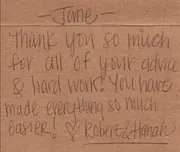 - Jane -
Thank you so much
for all of your advice
& hard work! You have
made everything so much
easier! ♡ Robert & Hanah